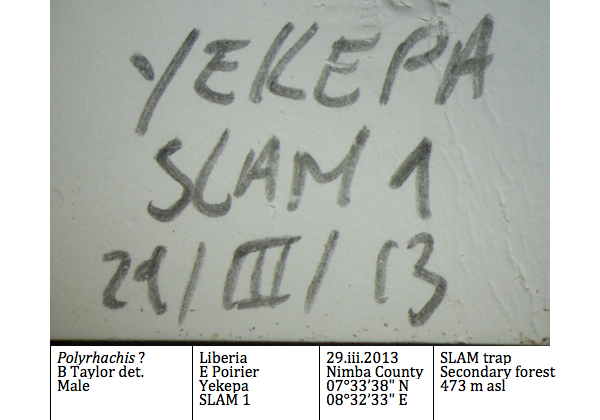 YEKEPA
SLAM 1
29/III/13
Polyrhachis ?
B Taylor det.
Male
Liberia
E Poirier
Yekepa
SLAM 1
29.iii.2013
Nimba County
07°33'38" N
08°32'33" E
SLAM trap
Secondary forest
473 m asl